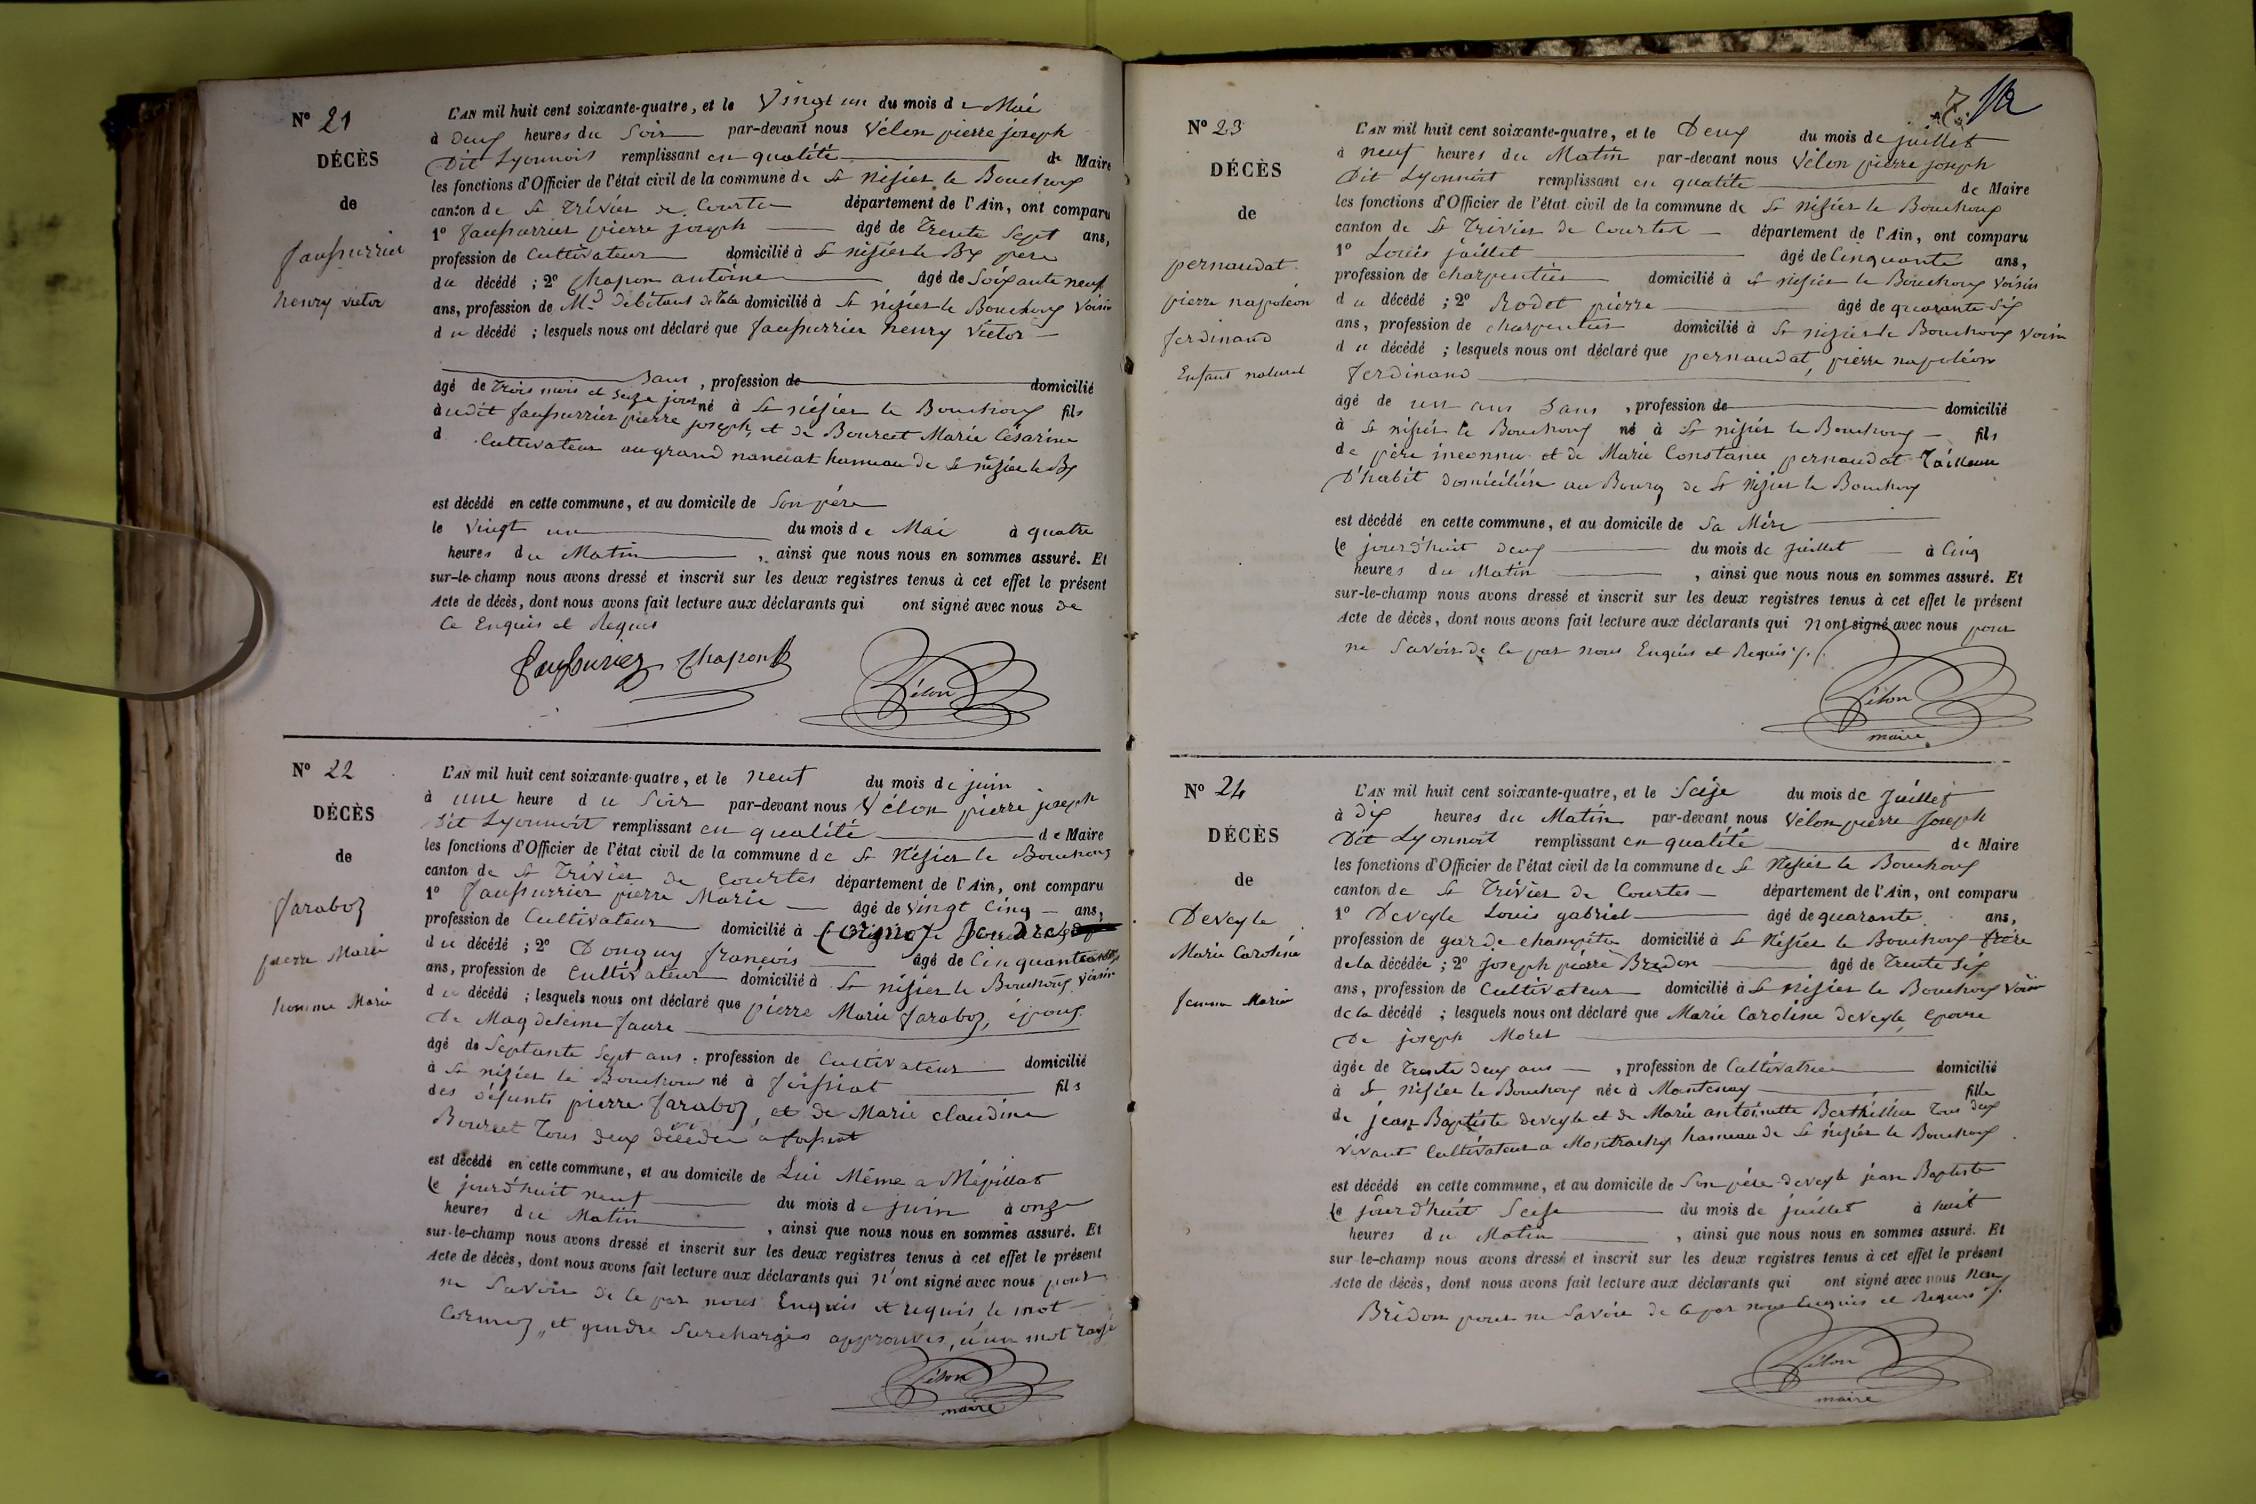 N° 21
DÉCÈS
de
faussurrier
henry victor
L'AN mil huit cent soixante-quatre, et le Vingt un du mois de Mai
à deux heures du Soir par-devant nous Vélon pierre joseph
Dit Lyonnoit remplissant en qualité de Maire
les fonctions d'Officier de l'état civil de la commune de St nisier le Bouchoux
canton de St Trivier de Courtes département de l'Ain, ont comparu
1° faussurrier pierre joseph âgé de Trente Sept ans,
profession de Cultivateur domicilié à St nisier le Bx pere
du décédé ; 2° Chapon antoine âgé de Soixante neuf
ans, profession de Md débitant de Taba domicilié à St nisier le Bouchoux Voisin
du décédé ; lesquels nous ont déclaré que faussurrier henry victor
âgé de Trois mois et Seize jours Sans , profession de domicilié
à né à St nisier le Bouchoux fils
dudit faussurrier pierre joseph, et de Bourcet Marie Césarine
d Cultivateur au grand nanciat hameau de St nisier le Bx
est décédé en cette commune, et au domicile de Son père
le Vingt un du mois de Mai à quatre
heures du Matin , ainsi que nous nous en sommes assuré. Et
sur-le-champ nous avons dressé et inscrit sur les deux registres tenus à cet effet le présent
Acte de décès, dont nous avons fait lecture aux déclarants qui ont signé avec nous de
ce Enquis et Requis
faussurier Chapon
Vélon
N° 22
DÉCÈS
de
faraboz
pierre Marie
homme Marié
L'AN mil huit cent soixante-quatre, et le neuf du mois de juin
à une heure du Soir par-devant nous Vélon pierre joseph
Dit Lyonnoit remplissant en qualité de Maire
les fonctions d'Officier de l'état civil de la commune de St Nisier le Bouchoux
canton de St Trivier de Courtes département de l'Ain, ont comparu
1° faussurrier pierre Marie âgé de vingt Cinq ans,
profession de Cultivateur domicilié à Cormoz gendre
du décédé ; 2° Donguy françois âgé de Cinquante
ans, profession de Cultivateur domicilié à St nisier le Bouchoux voisin
du décédé ; lesquels nous ont déclaré que pierre Marie faraboz, époux
De Magdeleine faure
âgé de Septante Sept ans , profession de Cultivateur domicilié
à St nizier le Bouchoux né à foissiat fils
des défunts pierre faraboz, et de Marie claudine
Bourcet Tous deux décédés a foissiat
est décédé en cette commune, et au domicile de Lui Même a Mépillat
le jourd'huit neuf du mois de juin à onze
heures du Matin , ainsi que nous nous en sommes assuré. Et
sur-le-champ nous avons dressé et inscrit sur les deux registres tenus à cet effet le présent
Acte de décès, dont nous avons fait lecture aux déclarants qui n'ont signé avec nous pour
ne Savoir de ce par nous Enquis et requis, le mot
Cormoz, et gendre Surchargés approuvés, et un mot rayé
Vélon
maire
N° 23
DÉCÈS
de
pernaudat
pierre napoléon
ferdinand
Enfant naturel
L'AN mil huit cent soixante-quatre, et le Deux du mois de juillet
à neuf heures du Matin par-devant nous Vélon pierre joseph
Dit Lyonnoit remplissant en qualité de Maire
les fonctions d'Officier de l'état civil de la commune de St nisier le Bouchoux
canton de St Trivier de Courtes département de l'Ain, ont comparu
1° Louis jaillet âgé de Cinquante ans,
profession de charpentier domicilié à St nisier le Bouchoux voisin
du décédé ; 2° Rodet pierre âgé de quarante Six
ans, profession de charpentier domicilié à St nisier le Bouchoux Voisin
du décédé ; lesquels nous ont déclaré que pernaudat, pierre napoléon
ferdinand
âgé de un ans Sans , profession de domicilié
à St nisier le Bouchoux né à St nisier le Bouchoux fils
de père inconnu et de Marie Constance pernaudat Tailleuse
D'habit domiciliée au Bourg de St Nisier le Bouchoux
est décédé en cette commune, et au domicile de Sa Mère
le jourd'huit deux du mois de juillet à Cinq
heures du Matin , ainsi que nous nous en sommes assuré. Et
sur-le-champ nous avons dressé et inscrit sur les deux registres tenus à cet effet le présent
Acte de décès, dont nous avons fait lecture aux déclarants qui n ont signé avec nous pour
ne Savoir de ce par nous Enquis et Requis
Vélon
maire
N° 24
DÉCÈS
de
Deveyle
Marie Caroline
femme Marié
L'AN mil huit cent soixante-quatre, et le Seize du mois de juillet
à Dix heures du Matin par-devant nous Vélon pierre Joseph
Dit Lyonnoit remplissant en qualité de Maire
les fonctions d'Officier de l'état civil de la commune de St Nisier le Bouchoux
canton de St Trivier de Courtes département de l'Ain, ont comparu
1° Deveyle Louis gabriel âgé de quarante ans,
profession de garde champêtre domicilié à St Nisier le Bouchoux frère
de la décédée ; 2° Joseph pierre Bredon âgé de Trente Six
ans, profession de Cultivateur domicilié à St Nisier le Bouchoux Voisin
de la décédé ; lesquels nous ont déclaré que Marie Caroline deveyle, épouse
De joseph Moret
âgée de Trente deux ans , profession de Cultivatrice domicilié
à St Nisier le Bouchoux née à Mantenay fille
de jean Baptiste deveyle et de Marie antoinette Berthillier Tous deux
vivant Cultivateur a Montrachy hameau de St nisier le Bouchoux
est décédé en cette commune, et au domicile de Son père deveyle jean Baptiste
le jourd'huit Seize du mois de juillet à huit
heures du Matin , ainsi que nous nous en sommes assuré. Et
sur-le-champ nous avons dressé et inscrit sur les deux registres tenus à cet effet le présent
Acte de décès, dont nous avons fait lecture aux déclarants qui ont signé avec nous non
Bridon pour ne Savoir de ce par nous Enquis et Requis
Vélon
maire